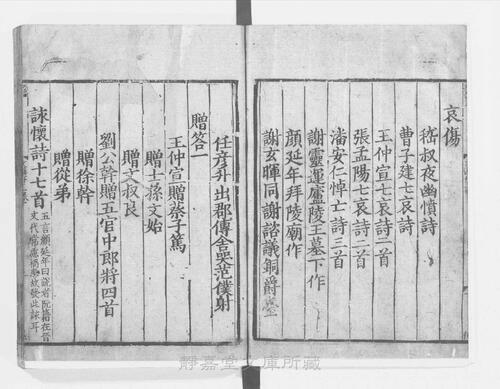 哀傷
嵇叔夜幽憤詩
曹子建七哀詩
王仲宣七哀詩二首
張孟陽七哀詩二首
潘安仁悼亡詩三首
謝靈運廬陵王墓下作
顔延年拜陵廟作
謝玄暉同謝諮議銅爵臺
任彦升出郡傳舍哭范僕射
贈答一
王仲宣贈蔡子篤
贈士孫文始
贈文叔良
劉公幹贈五官中郎將四首
贈徐幹
贈從弟
詠懷詩十七首
五言顔延年曰說者阮籍在晉
文代常慮禍患故發此詠耳
靜嘉堂文庫所藏